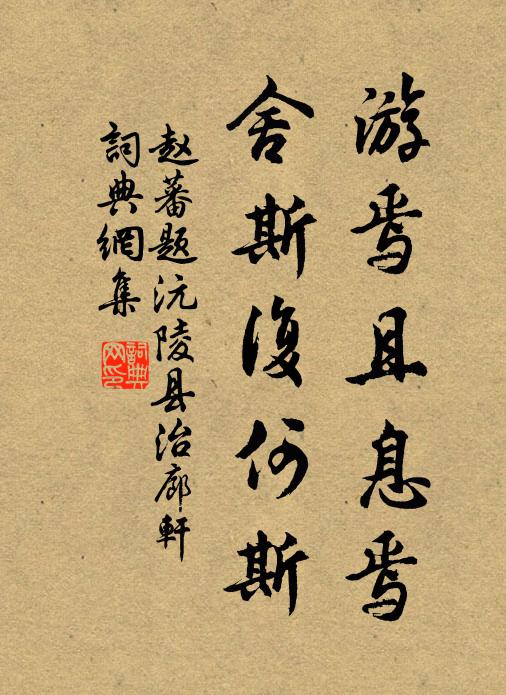 游焉且息焉
舍斯復何斯
赵蕃题沅陵县治廊軒
詞典網集
詞典網印